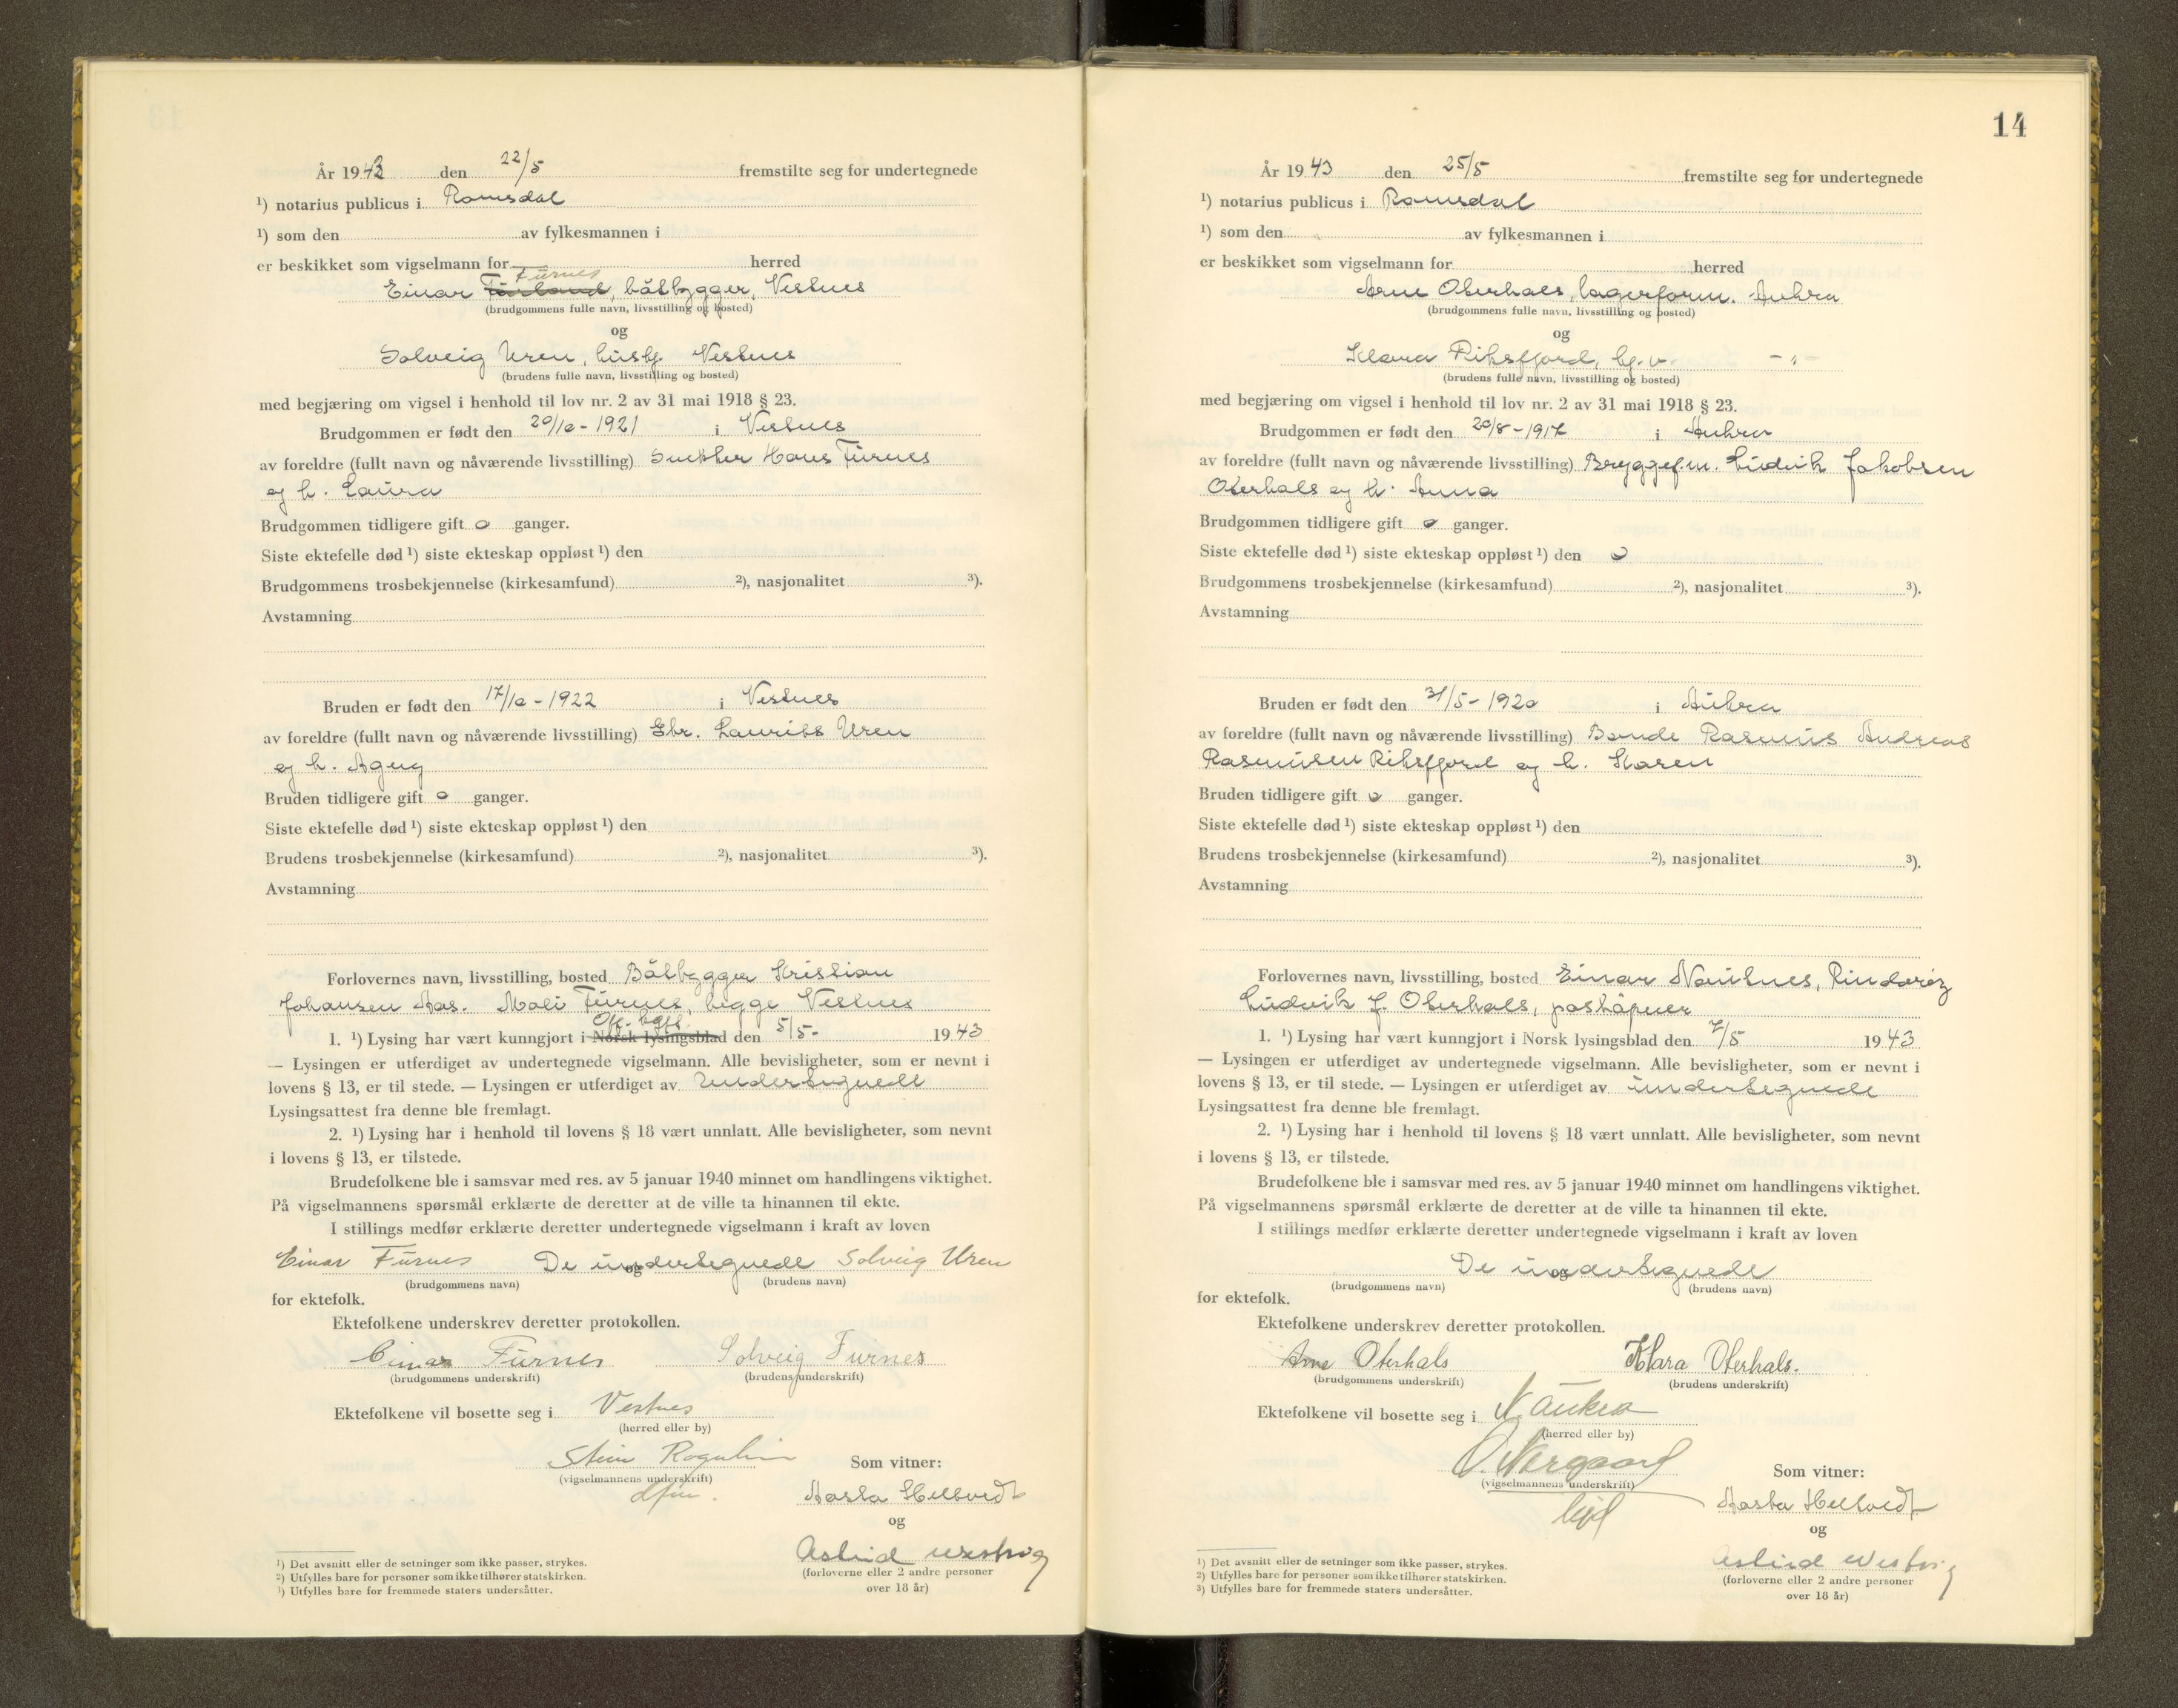 År 1943 den 22/5 fremstilte seg for undertegnede
¹) notarius publicus i Romsdal
¹) som den av fylkesmannen i
er beskikket som vigselmann for herred
Furnes
Einar Furland, båtbygger, Vestnes
(brudgommens fulle navn, livsstilling og bosted)
og
Solveig Uren, hush. Vestnes
(brudens fulle navn, livsstilling og bosted)
med begjæring om vigsel i henhold til lov nr. 2 av 31 mai 1918 § 23.
Brudgommen er født den 20/10-1921 i Vestnes
av foreldre (fullt navn og nåværende livsstilling) Snekker Hans Furnes
og h. Laura
Brudgommen tidligere gift 0 ganger.
Siste ektefelle død ¹) siste ekteskap oppløst ¹) den
Brudgommens trosbekjennelse (kirkesamfund) ²), nasjonalitet ³).
Avstamning
Bruden er født den 17/10-1922 i Vestnes
av foreldre (fullt navn og nåværende livsstilling) Gbr. Laurits Uren
og h. Agny
Bruden tidligere gift 0 ganger.
Siste ektefelle død ¹) siste ekteskap oppløst ¹) den
Brudens trosbekjennelse (kirkesamfund) ²), nasjonalitet ³).
Avstamning
Forlovernes navn, livsstilling, bosted Båtbygger Kristian
Johansen Aas. Moli Furnes, begge Vestnes
Off.
1. ¹) Lysing har vært kunngjort i Norsk lysingsblad den 5/5- 1943
— Lysingen er utferdiget av undertegnede vigselmann. Alle bevisligheter, som er nevnt i
lovens § 13, er til stede. — Lysingen er utferdiget av Undertegnede
Lysingsattest fra denne ble fremlagt.
2. ¹) Lysing har i henhold til lovens § 18 vært unnlatt. Alle bevisligheter, som nevnt
i lovens § 13, er tilstede.
Brudefolkene ble i samsvar med res. av 5 januar 1940 minnet om handlingens viktighet.
På vigselmannens spørsmål erklærte de deretter at de ville ta hinannen til ekte.
I stillings medfør erklærte deretter undertegnede vigselmann i kraft av loven
Einar Furnes De undertegnede Solveig Uren
og
(brudgommens navn) (brudens navn)
for ektefolk.
Ektefolkene underskrev deretter protokollen.
Einar Furnes Solveig Furnes
(brudgommens underskrift) (brudens underskrift)
Ektefolkene vil bosette seg i Vestnes
(herred eller by)
Stein Rognlien
(vigselmannens underskrift)
dfm.
Som vitner:
Aasta Heltvedt
og
Astrid Westvig
(forloverne eller 2 andre personer
over 18 år)
¹) Det avsnitt eller de setninger som ikke passer, strykes.
²) Utfylles bare for personer som ikke tilhører statskirken.
³) Utfylles bare for fremmede staters undersåtter.
14
År 1943 den 25/5 fremstilte seg for undertegnede
¹) notarius publicus i Romsdal
¹) som den av fylkesmannen i
er beskikket som vigselmann for herred
Arne Oterhals, lagerform. Aukra
(brudgommens fulle navn, livsstilling og bosted)
og
Klara Riksfjord, hj.v. -"-
(brudens fulle navn, livsstilling og bosted)
med begjæring om vigsel i henhold til lov nr. 2 av 31 mai 1918 § 23.
Brudgommen er født den 20/8-1917 i Aukra
av foreldre (fullt navn og nåværende livsstilling) Bryggef.m. Ludvik Jakobsen
Oterhals og h. Anna
Brudgommen tidligere gift 0 ganger.
Siste ektefelle død ¹) siste ekteskap oppløst ¹) den 0
Brudgommens trosbekjennelse (kirkesamfund) ²), nasjonalitet ³).
Avstamning
Bruden er født den 31/5-1920 i Aukra
av foreldre (fullt navn og nåværende livsstilling) Bonde Rasmus Andreas
Rasmusen Riksfjord og h. Karen
Bruden tidligere gift 0 ganger.
Siste ektefelle død ¹) siste ekteskap oppløst ¹) den
Brudens trosbekjennelse (kirkesamfund) ²), nasjonalitet ³).
Avstamning
Forlovernes navn, livsstilling, bosted Einar Nautnes, Rindarøy
Ludvik J. Oterhals, poståpner
1. ¹) Lysing har vært kunngjort i Norsk lysingsblad den 7/5 1943
— Lysingen er utferdiget av undertegnede vigselmann. Alle bevisligheter, som er nevnt i
lovens § 13, er til stede. — Lysingen er utferdiget av undertegnede
Lysingsattest fra denne ble fremlagt.
2. ¹) Lysing har i henhold til lovens § 18 vært unnlatt. Alle bevisligheter, som nevnt
i lovens § 13, er tilstede.
Brudefolkene ble i samsvar med res. av 5 januar 1940 minnet om handlingens viktighet.
På vigselmannens spørsmål erklærte de deretter at de ville ta hinannen til ekte.
I stillings medfør erklærte deretter undertegnede vigselmann i kraft av loven
De undertegnede
og
(brudgommens navn) (brudens navn)
for ektefolk.
Ektefolkene underskrev deretter protokollen.
Arne Oterhals Klara Oterhals.
(brudgommens underskrift) (brudens underskrift)
Ektefolkene vil bosette seg i N. Aukra
(herred eller by)
O. Norgaard
(vigselmannens underskrift)
Som vitner:
Aasta Heltvedt
og
Astrid Westvig
(forloverne eller 2 andre personer
over 18 år)
¹) Det avsnitt eller de setninger som ikke passer, strykes.
²) Utfylles bare for personer som ikke tilhører statskirken.
³) Utfylles bare for fremmede staters undersåtter.